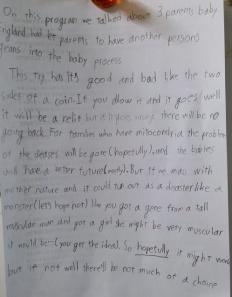 On this program we talked about 3 parents baby
England had let parents to have another persons
jeans into the baby process
This try has its good and bad like the two
sides of a coin. If you allow it and it goes well
it will be a relif but it there will be no
going back. For families who have mitocondria the problem
of the deases will be gone (hopefully), and the babies
will have a better future (). But if we mass with
mother nature and it could run out as a disaster like a
monster (lets hope not) like you got a gene from a tall
muscular man and got a girl she might be very muscular
it would be-(you get the idea). So hopefully it might work
but if not well there'll be not much of a choice